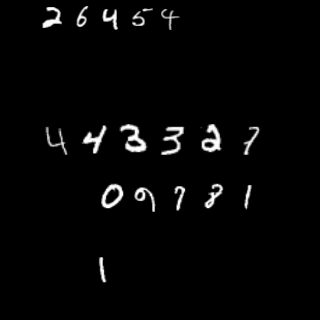 26454
443327
09781
1